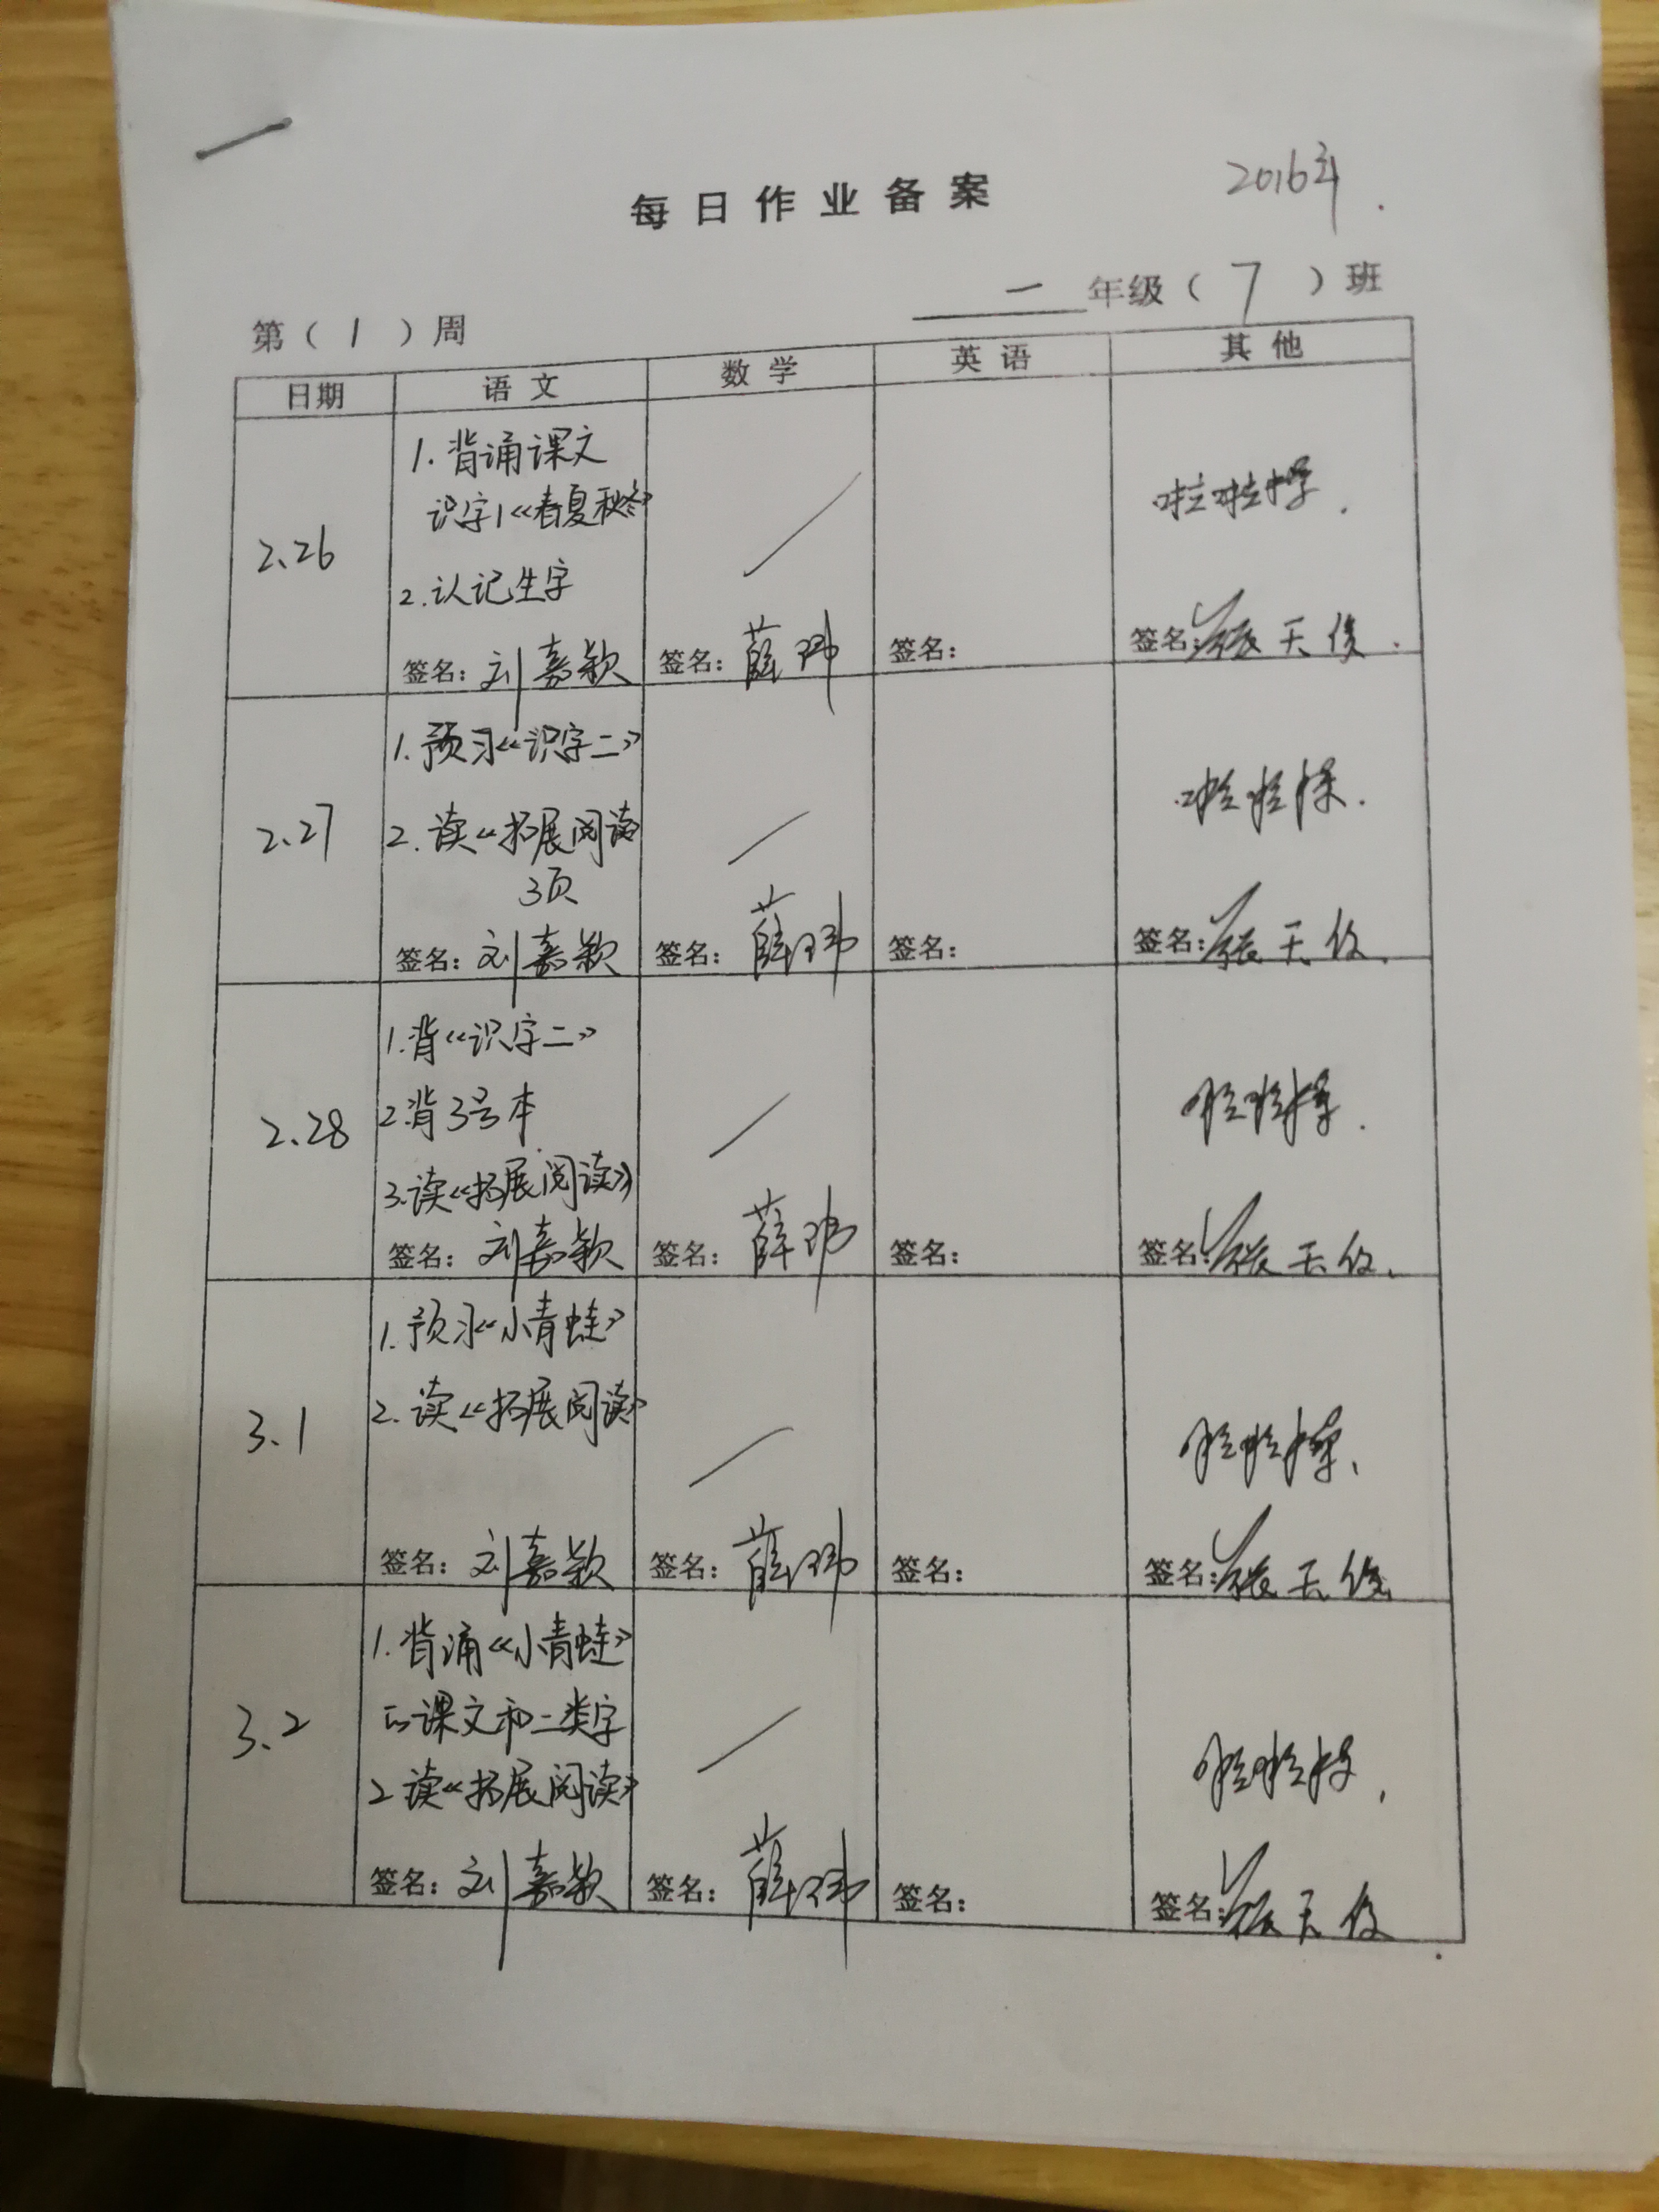 每日作业备案
2016年.
一年级（7）班
第（1）周
日期 语文 数学 英语 其他
2.26
1.背诵课文
识字1《春夏秋冬》
2.认记生字
签名：刘嘉颖
签名：薛玮
签名：
啦啦操.
签名：张天俊.
2.27
1.预习《识字二》
2.读《拓展阅读
3页
签名：刘嘉颖
签名：薛玮
签名：
啦啦操.
签名：张天俊.
2.28
1.背《识字二》
2.背3号本
3.读《拓展阅读》
签名：刘嘉颖
签名：薛玮
签名：
啦啦操.
签名：张天俊.
3.1
1.预习《小青蛙》
2.读《拓展阅读》
签名：刘嘉颖
签名：薛玮
签名：
啦啦操.
签名：张天俊
3.2
1.背诵《小青蛙》
的课文和二类字
2.读《拓展阅读》
签名：刘嘉颖
签名：薛玮
签名：
啦啦操.
签名：张天俊